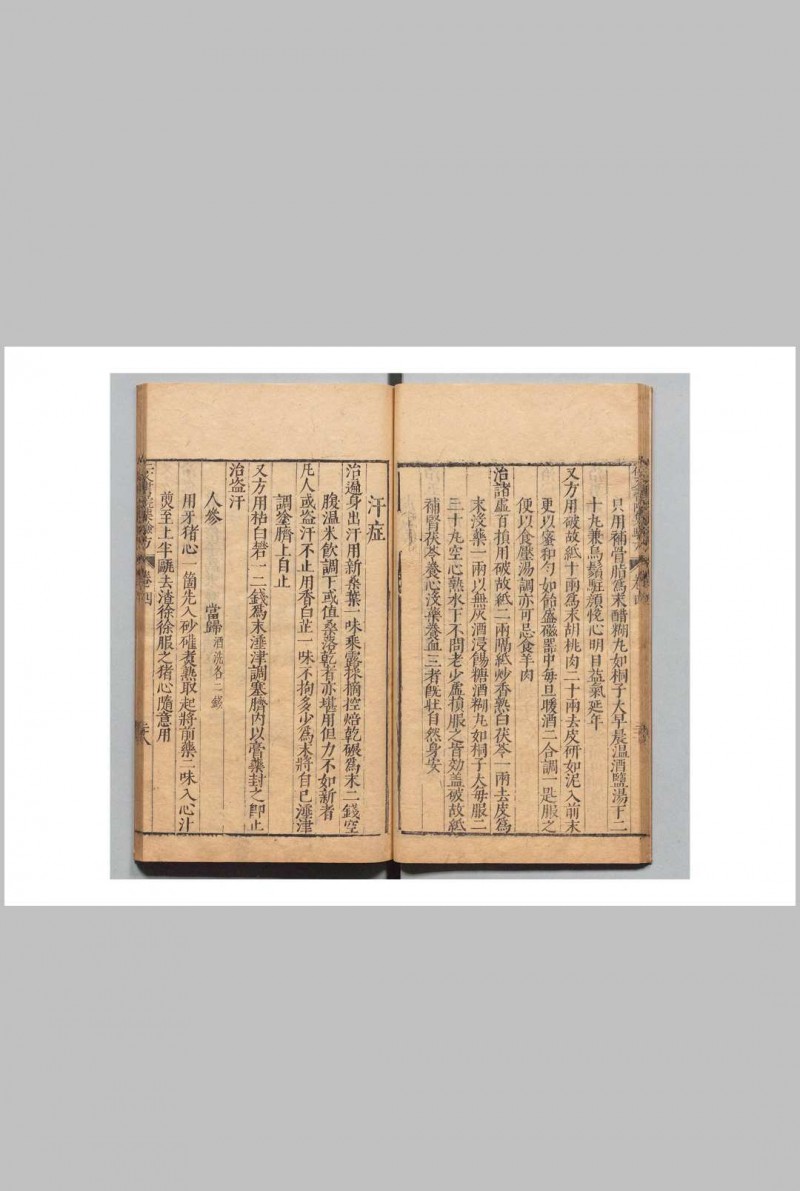 只用補骨脂爲末醋糊丸如桐子大早晨温酒鹽湯下二
十丸兼烏鬚駐顏悅心明目益氣延年
又方用破故紙十兩爲末胡桃肉二十兩去皮研如泥入前末
更以蜜和勻如飴盛磁器中每旦暖酒二合調一匙服之
便以食壓湯調亦可忌食羊肉
治諸虛百損用破故紙二兩隔紙炒香熟白茯苓一兩去皮爲
末沒藥一兩以無灰酒浸餳糖酒糊丸如桐子大每服二
三十丸空心熱水下不問老少虛損服之皆効蓋破故紙
補腎茯苓養心沒藥養血三者旣壯自然身安
汗症
治遍身出汗用新桑葉一味乘露採摘控焙乾碾爲末二錢空
腹温米飲調下或值桑落乾者亦堪用但力不如新者
凡人或盜汗不止用香白芷一味不拘多少爲末將自己津
調塗臍上自止
又方用枯白礬一二錢爲末津調塞臍內以膏藥封之卽止
治盜汗
人參 當歸酒洗各二錢
用牙猪心一箇先入砂礶煑熟取起將前藥二味入心汁
煎至上半甌去渣徐徐服之猪心隨意用
卷四